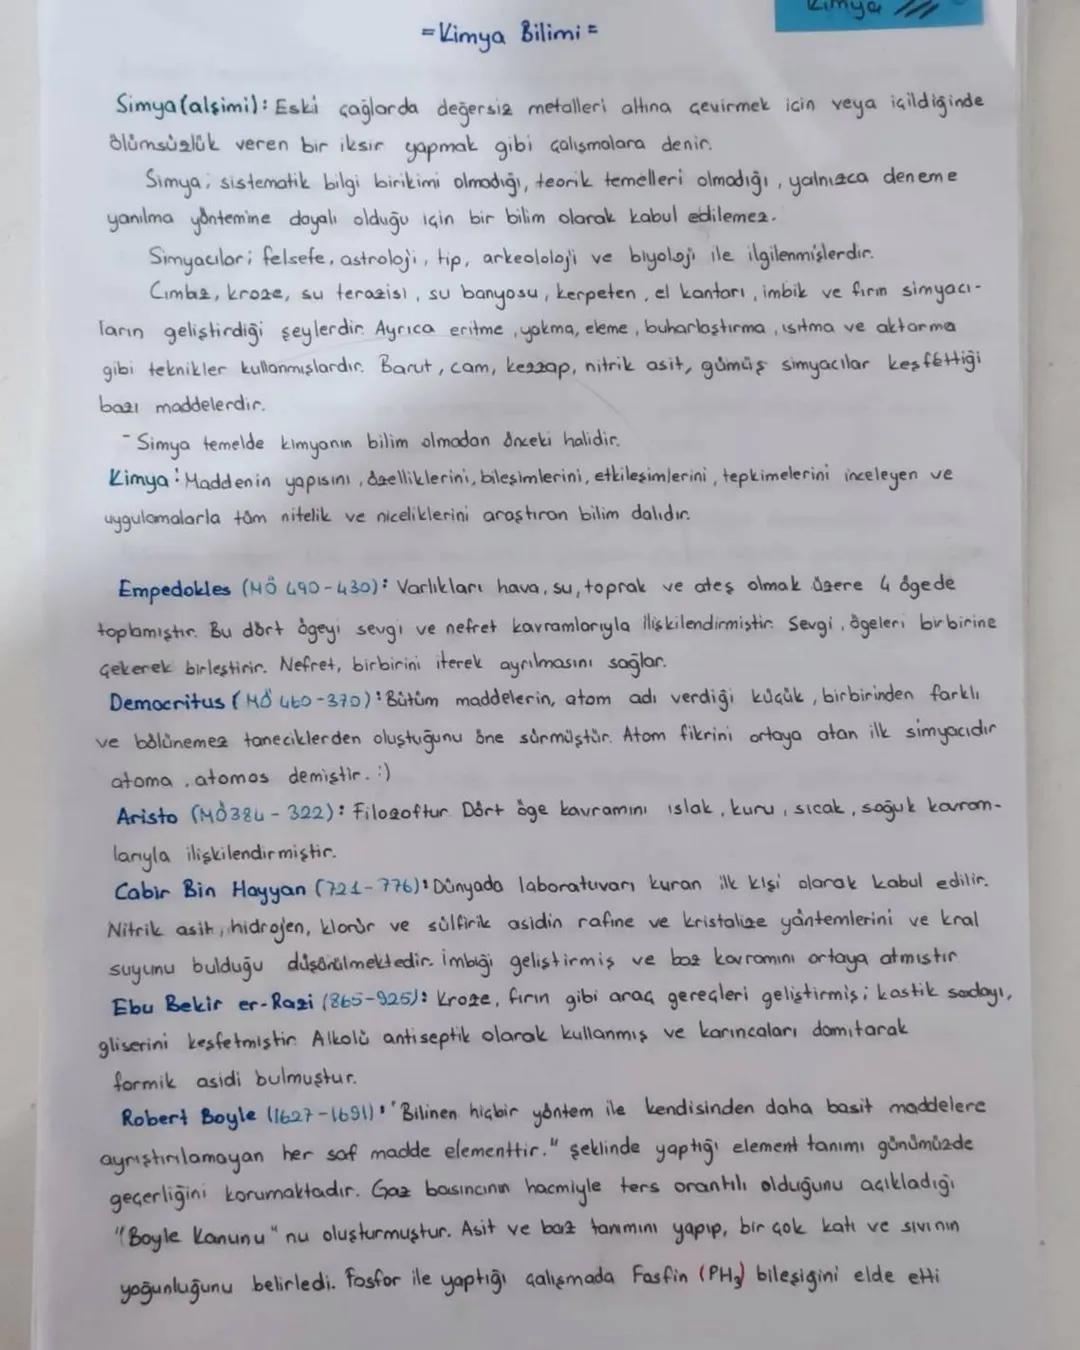 Kimya
=Kimya Bilimi=
Simya(alşimi): Eski çağlarda değersiz metalleri altına çevirmek için veya içildiğinde
ölümsüzlük veren bir iksir yapmak gibi çalışmalara denir.
Simya; sistematik bilgi birikimi olmadığı, teorik temelleri olmadığı, yalnızca deneme
yanılma yöntemine dayalı olduğu için bir bilim olarak kabul edilemez.
Simyacılar; felsefe, astroloji, tıp, arkeololoji ve biyoloji ile ilgilenmişlerdir.
Cımbız, kroze, su terazisi, su banyosu, kerpeten, el kantarı, imbik ve fırın simyacı-
ların geliştirdiği şeylerdir. Ayrıca eritme, yakma, eleme, buharlaştırma, ısıtma ve aktarma
gibi teknikler kullanmışlardır. Barut, cam, kezzap, nitrik asit, gümüş simyacılar keşfettiği
bazı maddelerdir.
- Simya temelde kimyanın bilim olmadan önceki halidir.
Kimya: Maddenin yapısını, özelliklerini, bileşimlerini, etkileşimlerini, tepkimelerini inceleyen ve
uygulamalarla tüm nitelik ve niceliklerini araştıran bilim dalıdır.
Empedokles (MÖ 490-430): Varlıkları hava, su, toprak ve ateş olmak üzere 4 ögede
toplamıştır. Bu dört ögeyi sevgi ve nefret kavramlarıyla ilişkilendirmiştir. Sevgi, ögeleri birbirine
çekerek birleştirir. Nefret, birbirini iterek ayrılmasını sağlar.
Democritus (MÖ 460-370): Bütüm maddelerin, atom adı verdiği küçük, birbirinden farklı
ve bölünemez taneciklerden oluştuğunu öne sürmüştür. Atom fikrini ortaya atan ilk simyacıdır
atoma, atomos demiştir. :)
Aristo (MÖ384-322): Filozoftur. Dört öge kavramını ıslak, kuru, sıcak, soğuk kavram-
larıyla ilişkilendirmiştir.
Cabir Bin Hayyan (721-776): Dünyada laboratuvarı kuran ilk kişi olarak kabul edilir.
Nitrik asit, hidrojen, klorür ve sülfirik asidin rafine ve kristalize yöntemlerini ve kral
suyunu bulduğu düşünülmektedir. İmbiği geliştirmiş ve baz kavramını ortaya atmıştır
Ebu Bekir er-Razi (865-925): Kroze, fırın gibi araç gereçleri geliştirmiş; kastik sodayı,
gliserini keşfetmiştir. Alkolü antiseptik olarak kullanmış ve karıncaları damıtarak
formik asidi bulmuştur.
Robert Boyle (1627-1691): "Bilinen hiçbir yöntem ile kendisinden daha basit maddelere
ayrıştırılamayan her saf madde elementtir." şeklinde yaptığı element tanımı günümüzde
geçerliğini korumaktadır. Gaz basıncının hacmiyle ters orantılı olduğunu açıkladığı
"Boyle Kanunu" nu oluşturmuştur. Asit ve baz tanımını yapıp, bir çok katı ve sıvının
yoğunluğunu belirledi. Fosfor ile yaptığı çalışmada Fosfin (PH₃) bileşiğini elde etti